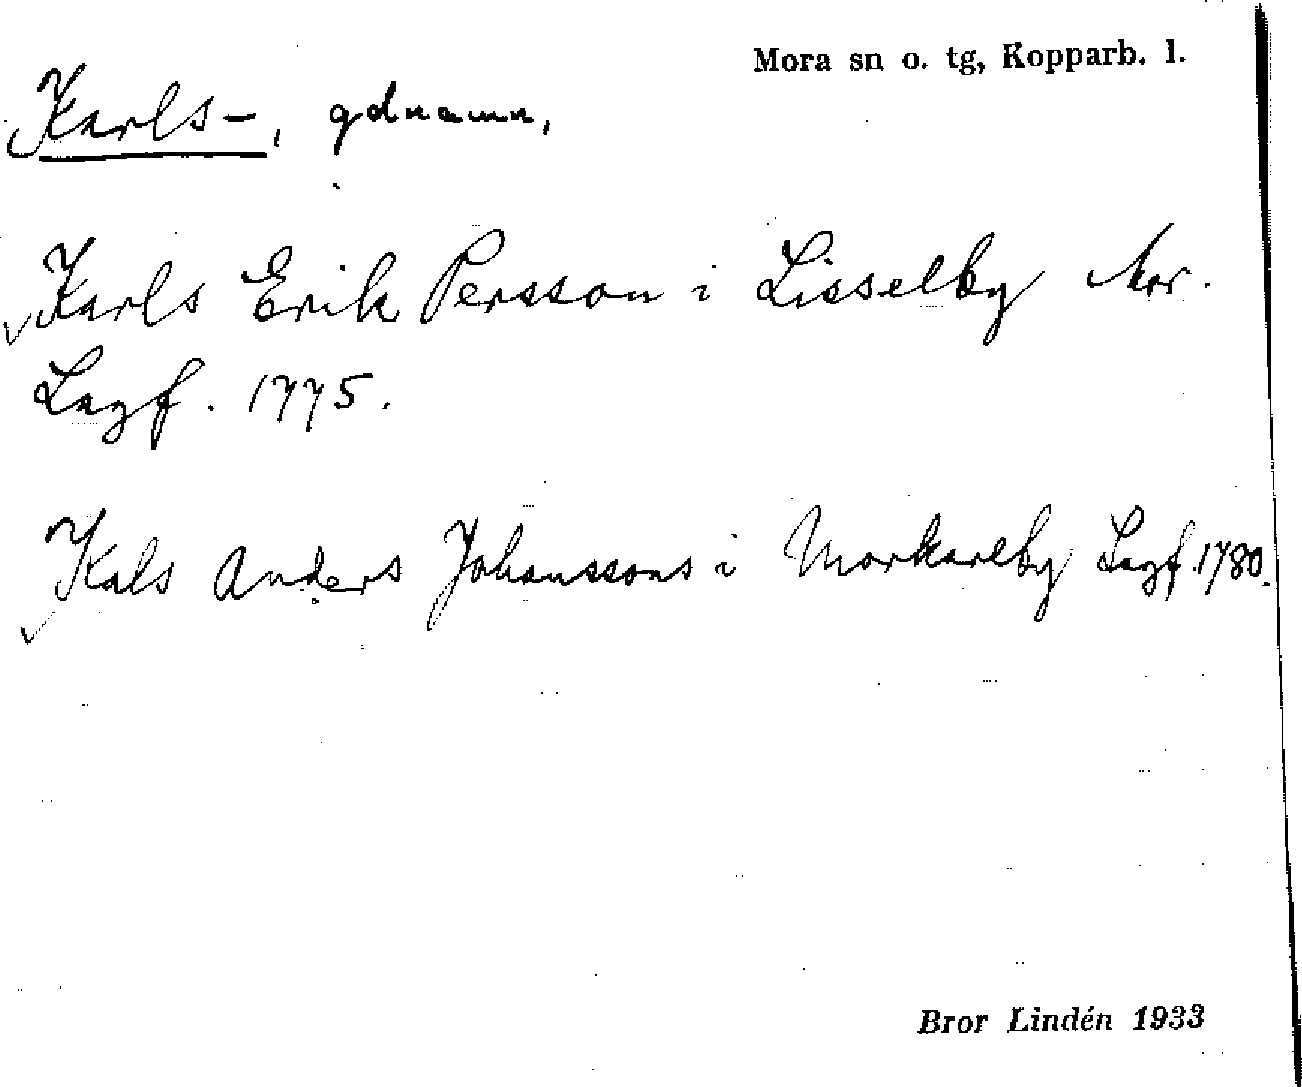 Mora sn o. tg, Kopparb. l.
Karls-, gdnamn,
Karls Erik Persson i Lisselby Mor.
Lagf. 1775.
Kals Anders Johanssons i Morkarlby Lagf. 1780.
Bror Lindén 1933